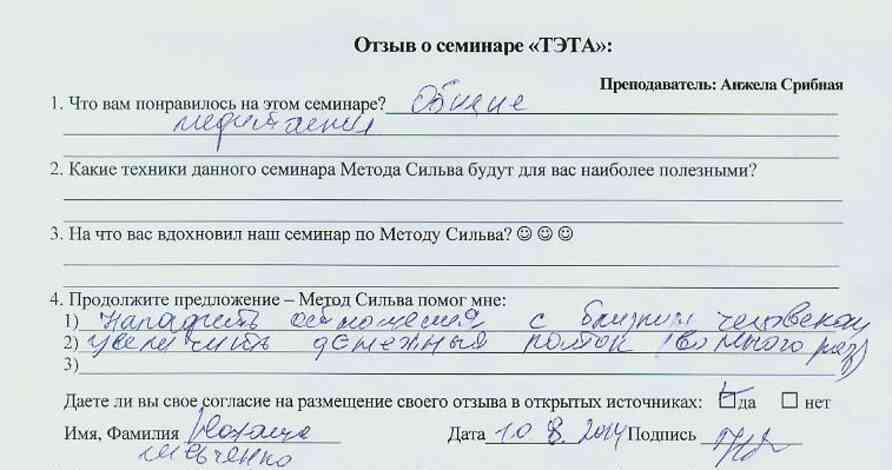 Отзыв о семинаре «ТЭТА»:
Преподаватель: Анжела Срибная
1. Что вам понравилось на этом семинаре? Общие
медитации
2. Какие техники данного семинара Метода Сильва будут для вас наиболее полезными?
3. На что вас вдохновил наш семинар по Методу Сильва? ☺ ☺ ☺
4. Продолжите предложение – Метод Сильва помог мне:
1) Наладить отношения с близким человеком
2) увеличить денежный поток (во много раз)
3)
Даете ли вы свое согласие на размещение своего отзыва в открытых источниках: да нет
Имя, Фамилия Наталья Дата 10 8. 2014 Подпись